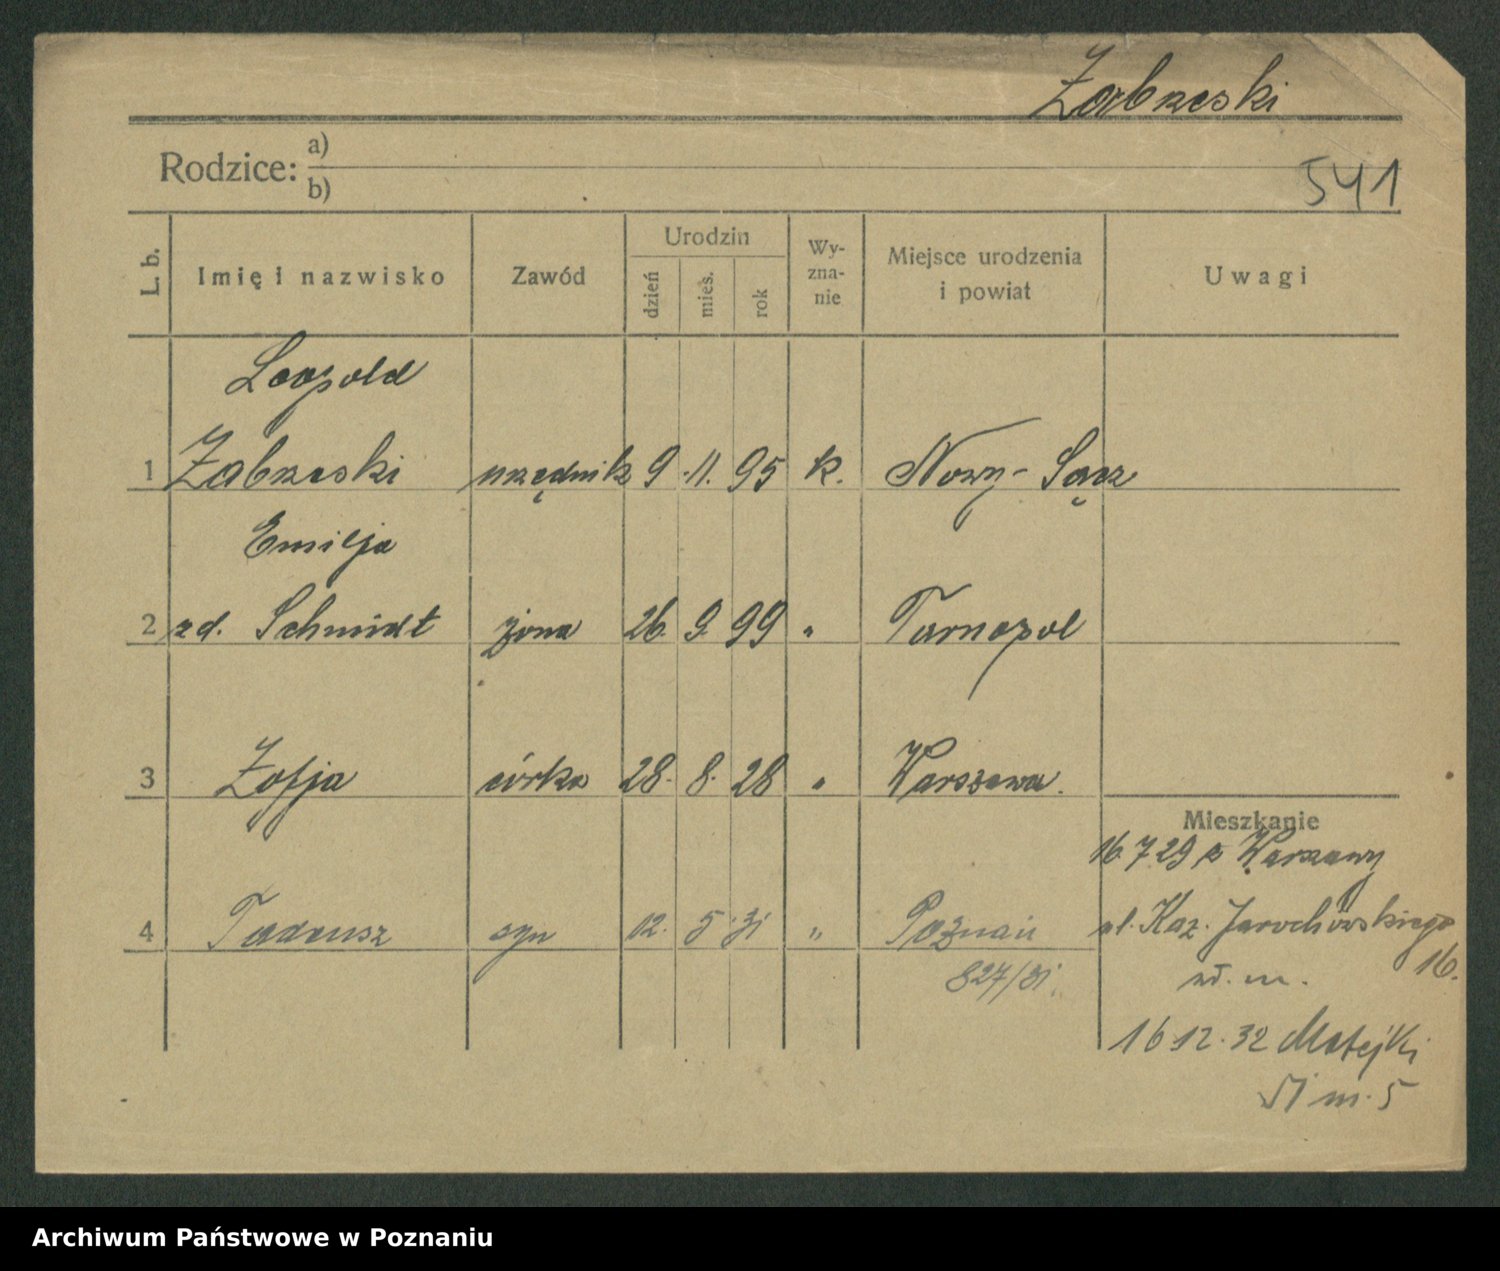 Zabrzeski
Rodzice: a)
b)
541
L. b.
Imię i nazwisko
Zawód
Urodzin
dzień
mieś.
rok
Wy-
zna-
nie
Miejsce urodzenia
i powiat
Uwagi
Leopold
1 Zabrzeski urzędnik 9 11. 95 k. Nowy-Sącz
Emilja
2 zd. Schmidt żona 26. 9. 99 " Tarnopol
3 Zofja córka 28. 8. 28 " Warszawa.
Mieszkanie
16.7.29 z Warszawy
4 Tadeusz syn 12. 5 31 " Poznań
ul. Kaz. Jarochowskiego
16.
827/31.
wł. m.
16 12. 32 Matejki
51 m. 5
Archiwum Państwowe w Poznaniu